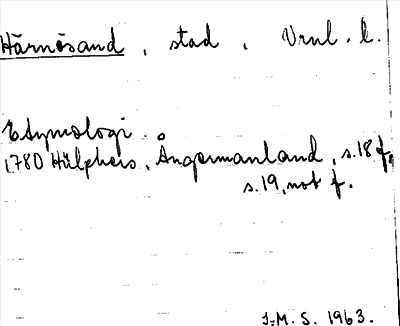 Härnösand, stad, Vrnl. l.
Etymologi.
1780 Hülphers, Ångermanland, s. 18 f,
s. 19, not f.
J.M. S. 1963.